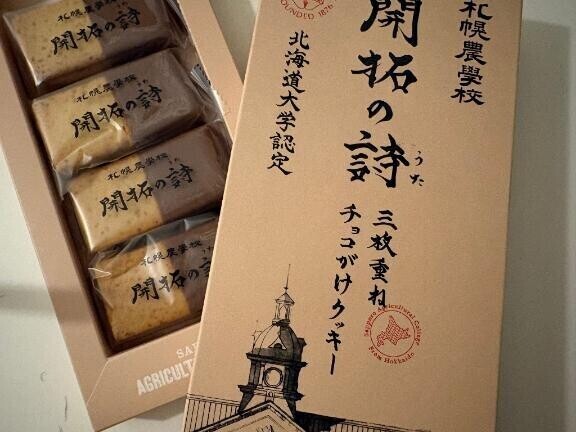 札幌農學校
開拓の詩
うた
北海道大学認定
三枚重ね
チョコがけクッキー
FOUNDED 1876
Sapporo Agricultural College
From Hokkaido
札幌農學校
開拓の詩
うた
札幌農學校
開拓の詩
うた
札幌農學校
開拓の詩
うた
札幌農學校
開拓の詩
うた